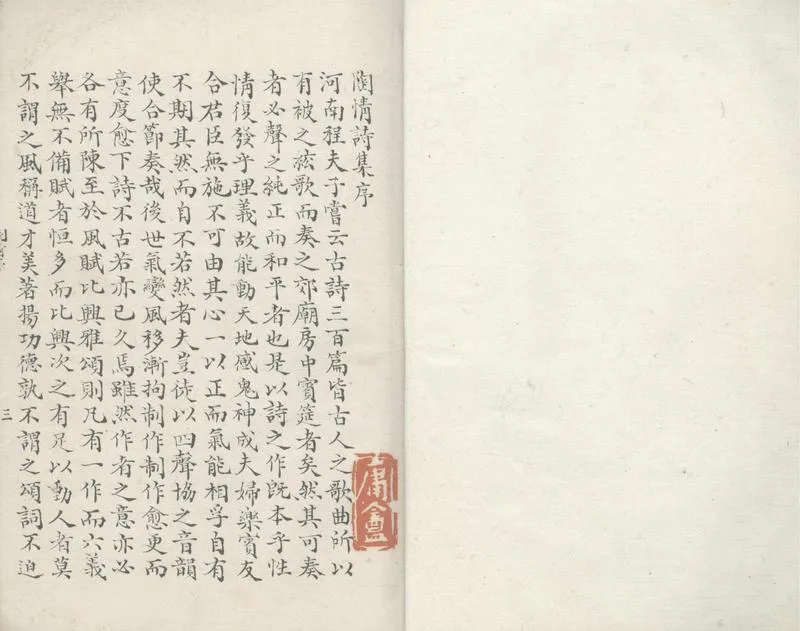 陶情詩集序
河南程夫子嘗云古詩三百篇皆古人之歌曲所以
有被之絃歌而奏之郊廟房中賓筵者矣然其可奏
者必聲之純正而和平者也是以詩之作旣本乎性
情復發乎理義故能動天地感鬼神成夫婦樂賓友
合君臣無施不可由其心一以正而氣能相孚自有
不期其然而自不若然者夫豈徒以四聲協之音韻
使合節奏哉後世氣變風移漸拘制作制作愈更而
意度愈下詩不古若亦已久焉雖然作者之意亦必
各有所陳至於風賦比興雅頌則凡有一作而六義
舉無不備賦者恒多而比興次之有足以動人者莫
不謂之風稱道才美著揚功德孰不謂之頌詞不迫
三